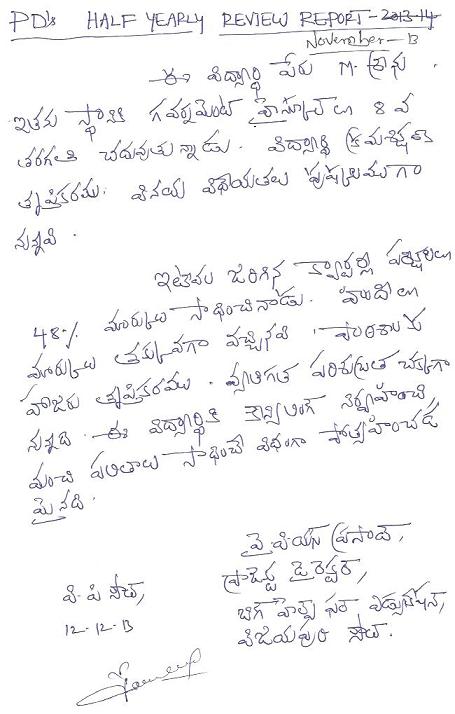 PD's HALF YEARLY REVIEW REPORT - 2013-14
November - 13
ఈ విద్యార్థి పేరు M. శ్రీను.
ఇతను స్థానిక గవర్నమెంట్ హైస్కూల్ లు 8 వ
తరగతి చదువుతున్నాడు. విద్యార్థి క్రమశిక్షణ
తృప్తికరము. వినయ విధేయతలు పుష్కలముగా
నున్నవి.
ఇటీవల జరిగిన క్వార్టర్లీ పరీక్షలలు
48% మార్కులు సాధించినాడు. హిందీ లు
మార్కులు తక్కువగా వచ్చినవి. పాఠశాలకు
హాజరు తృప్తికరము. వ్యక్తిగత పరిశుభ్రత చక్కగా
నున్నది. ఈ విద్యార్థికి కౌన్సిలింగ్ నిర్వహించి,
మంచి ఫలితాలు సాధించే విధంగా ప్రోత్సహించడ
మైనది.
వై పి యన్ ప్రసాద్,
ప్రాజెక్టు డైరెక్టర్,
వి. పి సౌత్,
బిగ్ హెల్ప్ ఫర్ ఎడ్యుకేషన్,
12-12-13
విజయపురి సౌత్.